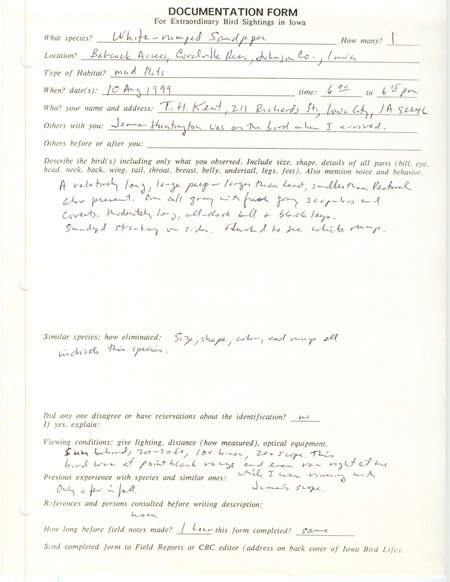 DOCUMENTATION FORM
For Extraordinary Bird Sightings in Iowa
What species? White-rumped Sandpiper How many? 1
Location? Babcock Access, Coralville Res., Johnson Co., Iowa
Type of Habitat? mud flats
When? date(s): 10 Aug 1999 time: 6 00 to 6 15 pm
Who? your name and address: T.H. Kent, 211 Richards St., Iowa City, IA 52246
Others with you: James Huntington was on the bird when I arrived.
Others before or after you:
Describe the bird(s) including only what you observed. Include size, shape, details of all parts (bill, eye,
head, neck, back, wing, tail, throat, breast, belly, undertail, legs, feet). Also mention voice and behavior.
A relatively long, large peep - larger than Least, smaller than Pectoral
also present. Over all gray with fresh gray scapulars and
coverts. Moderately long, all-dark bill + black legs.
Smudged streaking on sides. Flushed to see white rump.
Similar species; how eliminated: Size, shape, color, and rump all
indicate this species.
Did any one disagree or have reservations about the identification? no
If yes, explain:
Viewing conditions: give lighting, distance (how measured), optical equipment.
Sun behind, 20-30 ft, 10x binoc, 20x scope. This
bird was at point blank range and even ran right at me
while I was viewing with
Previous experience with species and similar ones:
Only a few in fall. James's scope.
References and persons consulted before writing description:
none
How long before field notes made? 1 hour this form completed? same
Send completed form to Field Reports or CBC editor (address on back cover of Iowa Bird Life).